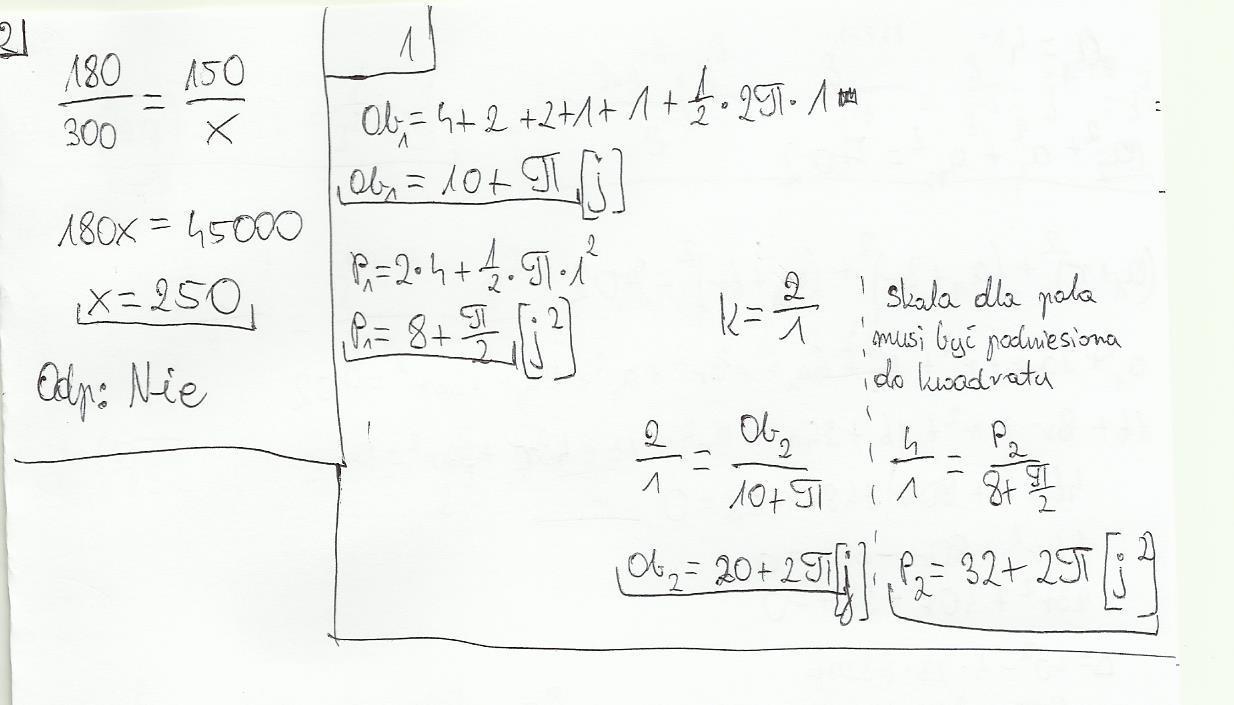 2
180/300 = 150/x
180x = 45000
x = 250
Odp: Nie
1
Ob₁ = 4 + 2 + 2 + 1 + 1 + 1/2 · 2π · 1
Ob₁ = 10 + π [j]
P₁ = 2 · 4 + 1/2 · π · 1²
P₁ = 8 + π/2 [j²]
k = 2/1
skala dla pola
musi być podniesiona
do kwadratu
2/1 = Ob₂/(10 + π)
4/1 = P₂/(8 + π/2)
Ob₂ = 20 + 2π [j]
P₂ = 32 + 2π [j²]